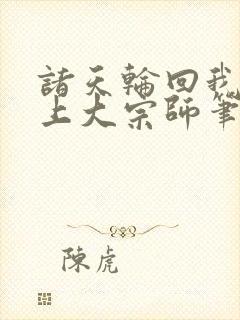 諸天輪回我
上大宗師筆
陳虎